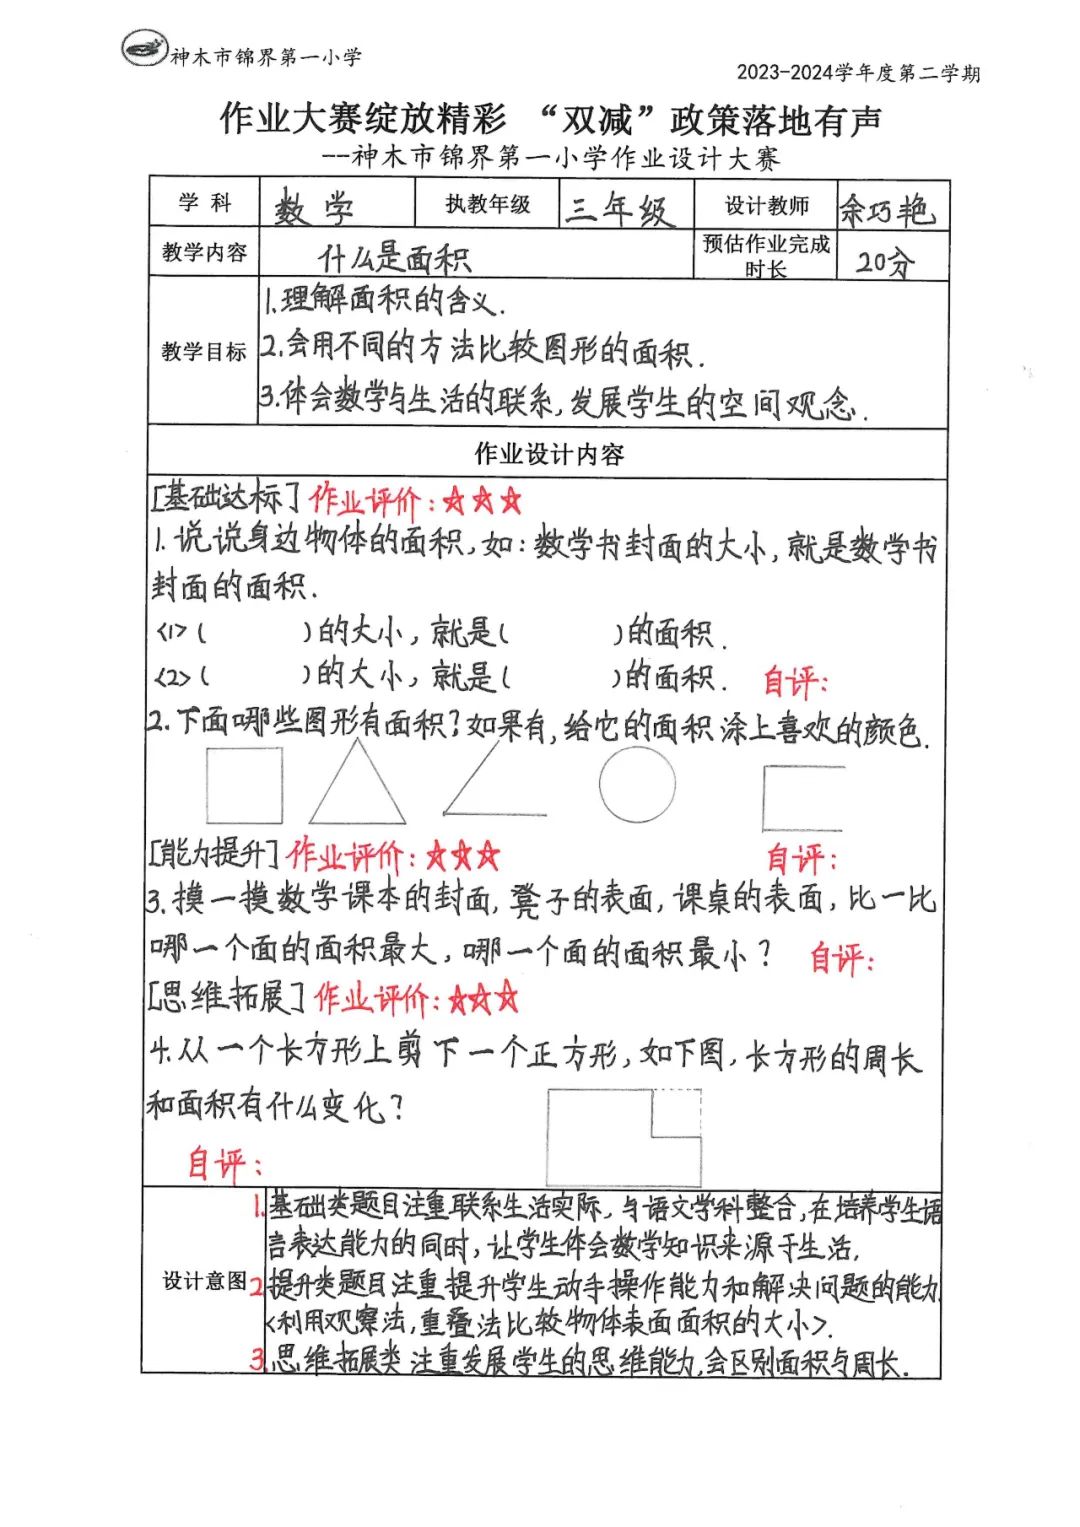 神木市锦界第一小学
2023-2024学年度第二学期
作业大赛绽放精彩 “双减”政策落地有声
---神木市锦界第一小学作业设计大赛
学 科 数学 执教年级 三年级 设计教师 余巧艳
教学内容 什么是面积 预估作业完成时长 20分
教学目标
1.理解面积的含义.
2.会用不同的方法比较图形的面积.
3.体会数学与生活的联系,发展学生的空间观念.
作业设计内容
[基础达标]作业评价:☆☆☆
1.说说身边物体的面积,如:数学书封面的大小,就是数学书
封面的面积.
<1>( )的大小,就是( )的面积.
<2>( )的大小,就是( )的面积. 自评:
2.下面哪些图形有面积?如果有,给它的面积涂上喜欢的颜色.
[能力提升]作业评价:☆☆☆ 自评:
3.摸一摸数学课本的封面,凳子的表面,课桌的表面,比一比
哪一个面的面积最大,哪一个面的面积最小? 自评:
[思维拓展]作业评价:☆☆☆
4.从一个长方形上剪下一个正方形,如下图,长方形的周长
和面积有什么变化?
自评:
设计意图
1.基础类题目注重联系生活实际,与语文学科整合,在培养学生语
言表达能力的同时,让学生体会数学知识来源于生活,
2.提升类题目注重提升学生动手操作能力和解决问题的能力
<利用观察法,重叠法比较物体表面面积的大小>.
3.思维拓展类注重发展学生的思维能力,会区别面积与周长.